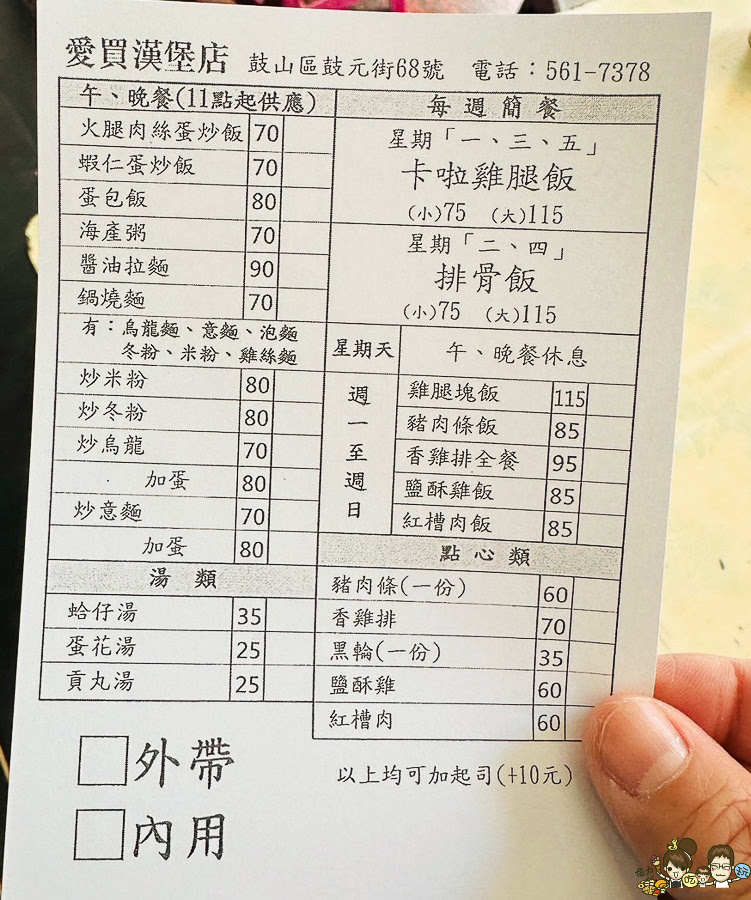 愛買漢堡店 鼓山區鼓元街68號 電話：561-7378
午、晚餐(11點起供應)
火腿肉絲蛋炒飯 70
蝦仁蛋炒飯 70
蛋包飯 80
海產粥 70
醬油拉麵 90
鍋燒麵 70
有：烏龍麵、意麵、泡麵
冬粉、米粉、雞絲麵
炒米粉 80
炒冬粉 80
炒烏龍 70
加蛋 80
炒意麵 70
加蛋 80
湯 類
蛤仔湯 35
蛋花湯 25
貢丸湯 25
每週簡餐
星期「一、三、五」
卡啦雞腿飯
(小)75 (大)115
星期「二、四」
排骨飯
(小)75 (大)115
星期天 午、晚餐休息
週一至週日
雞腿塊飯 115
豬肉條飯 85
香雞排全餐 95
鹽酥雞飯 85
紅槽肉飯 85
點心類
豬肉條(一份) 60
香雞排 70
黑輪(一份) 35
鹽酥雞 60
紅槽肉 60
以上均可加起司(+10元)
外帶
內用